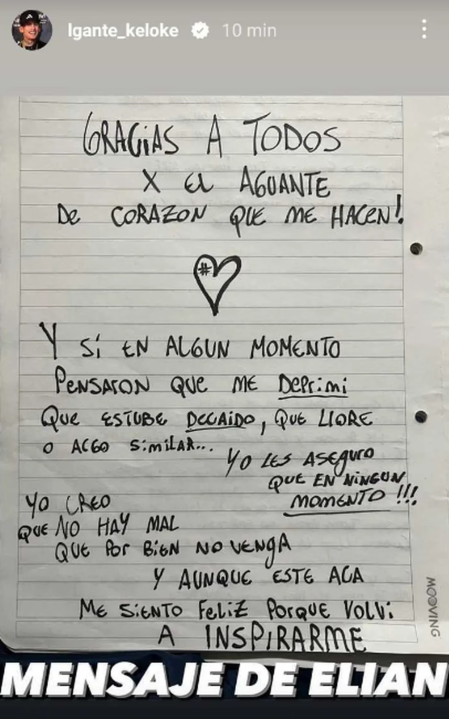 lgante_keloke 10 min
GRACIAS A TODOS
X EL AGUANTE
DE CORAZON QUE ME HACEN!
#
Y SÍ EN ALGUN MOMENTO
PENSARON QUE ME DEPRIMI
QUE ESTUBE DECAIDO, QUE LLORE
O ALGO SIMILAR...
YO LES ASEGURO
QUE EN NINGUN
MOMENTO !!!
YO CREO
QUE NO HAY MAL
QUE POR BIEN NO VENGA
Y AUNQUE ESTE ACA
ME SIENTO FELIZ PORQUE VOLVI
A INSPIRARME
MOOVING
MENSAJE DE ELIAN